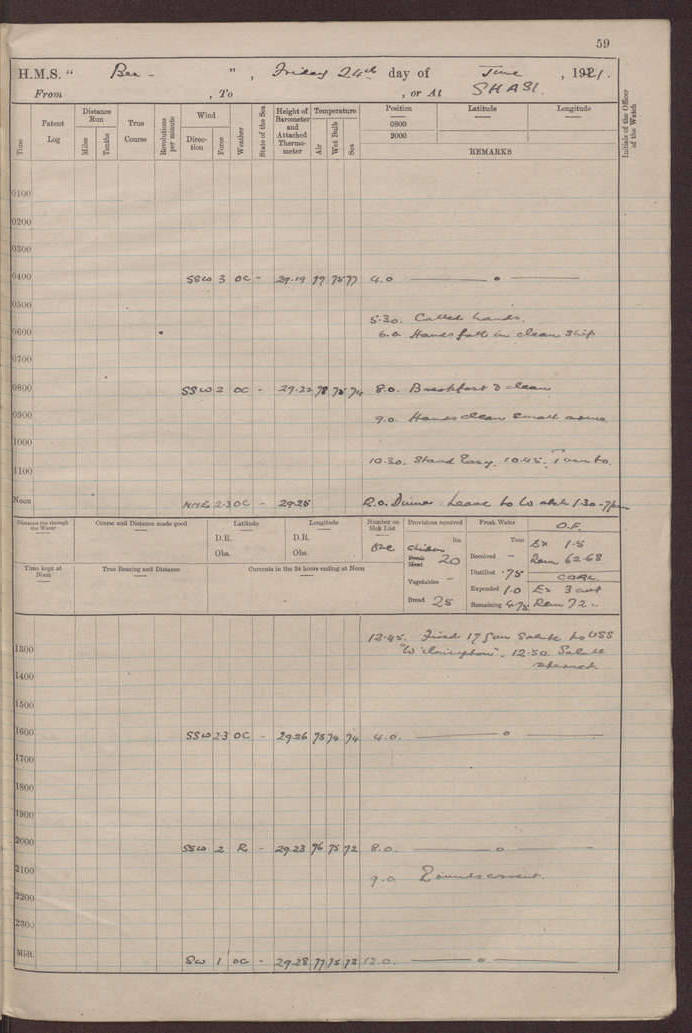 59
H.M.S. " Bee - " , Friday 24th day of June , 1921.
From , To , or At SHASI.
Time
Patent Log
Distance Run
Miles
Tenths
True Course
Revolutions per minute
Wind
Direction
Force
Weather
State of the Sea
Height of Barometer and Attached Thermometer
Temperature
Air
Wet Bulb
Sea
Position
Latitude
Longitude
0800
2000
REMARKS
Initials of the Officer of the Watch
0100
0200
0300
0400 SSW 3 OC - 29.19 79 75 77 4.0 — o —
0500
5.30. Called hands.
0600 6.0 Hands fall in clean ship
0700
0800 SSW 2 OC - 29.22 78 75 74 8.0. Breakfast & clean
0900 9.0 Hands clean small arms
1000
10.30. Stand Easy. 10.45. Turn to.
1100
Noon NNE 2-3 OC - 29.25 12.0. Dinner. Leave to Watch 1.30-7pm
Distance run through the Water
Course and Distance made good
Latitude
D.R.
Obs.
Longitude
D.R.
Obs.
Number on Sick List
One
Provisions received
lbs.
Chicken
20
Vegetables -
Bread 25
Fresh Water
Tons
Received -
Distilled .75
Expended 1.0
Remaining 4.75
O.F.
Ex 1.5
Rem 62.68
COAL
Ex 3 cwt
Rem 72 -
Time kept at Noon
True Bearing and Distance
Currents in the 24 hours ending at Noon
12.45. Fired 17 Gun Salute to USS
1300 "Wilmington". 12.50 Salute
returned
1400
1500
1600 SSW 2-3 OC - 29.26 75 74 74 4.0. — o —
1700
1800
1900
2000 SSW 2 R - 29.23 76 75 72 8.0. — o —
2100 9.0 Rounds correct.
2200
2300
Midt. SW 1 OC - 29.28 77 75 73 12.0. — o —